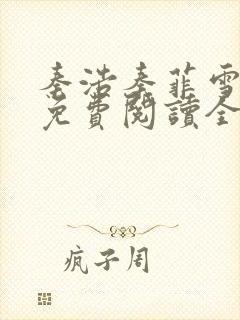 秦浩秦菲雪
免費閱讀全
疯子周